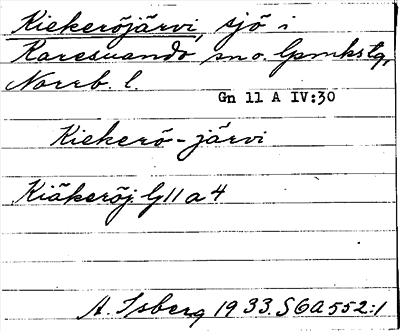 Kiekeröjärvi, sjö i
Karesuando sn o. lpmkslg,
Norrb. l.
Gn 11 A IV:30
Kiekerö-järvi
Kiäkeröj. G 11 a 4
A. Isberg 1933. S6a552:1